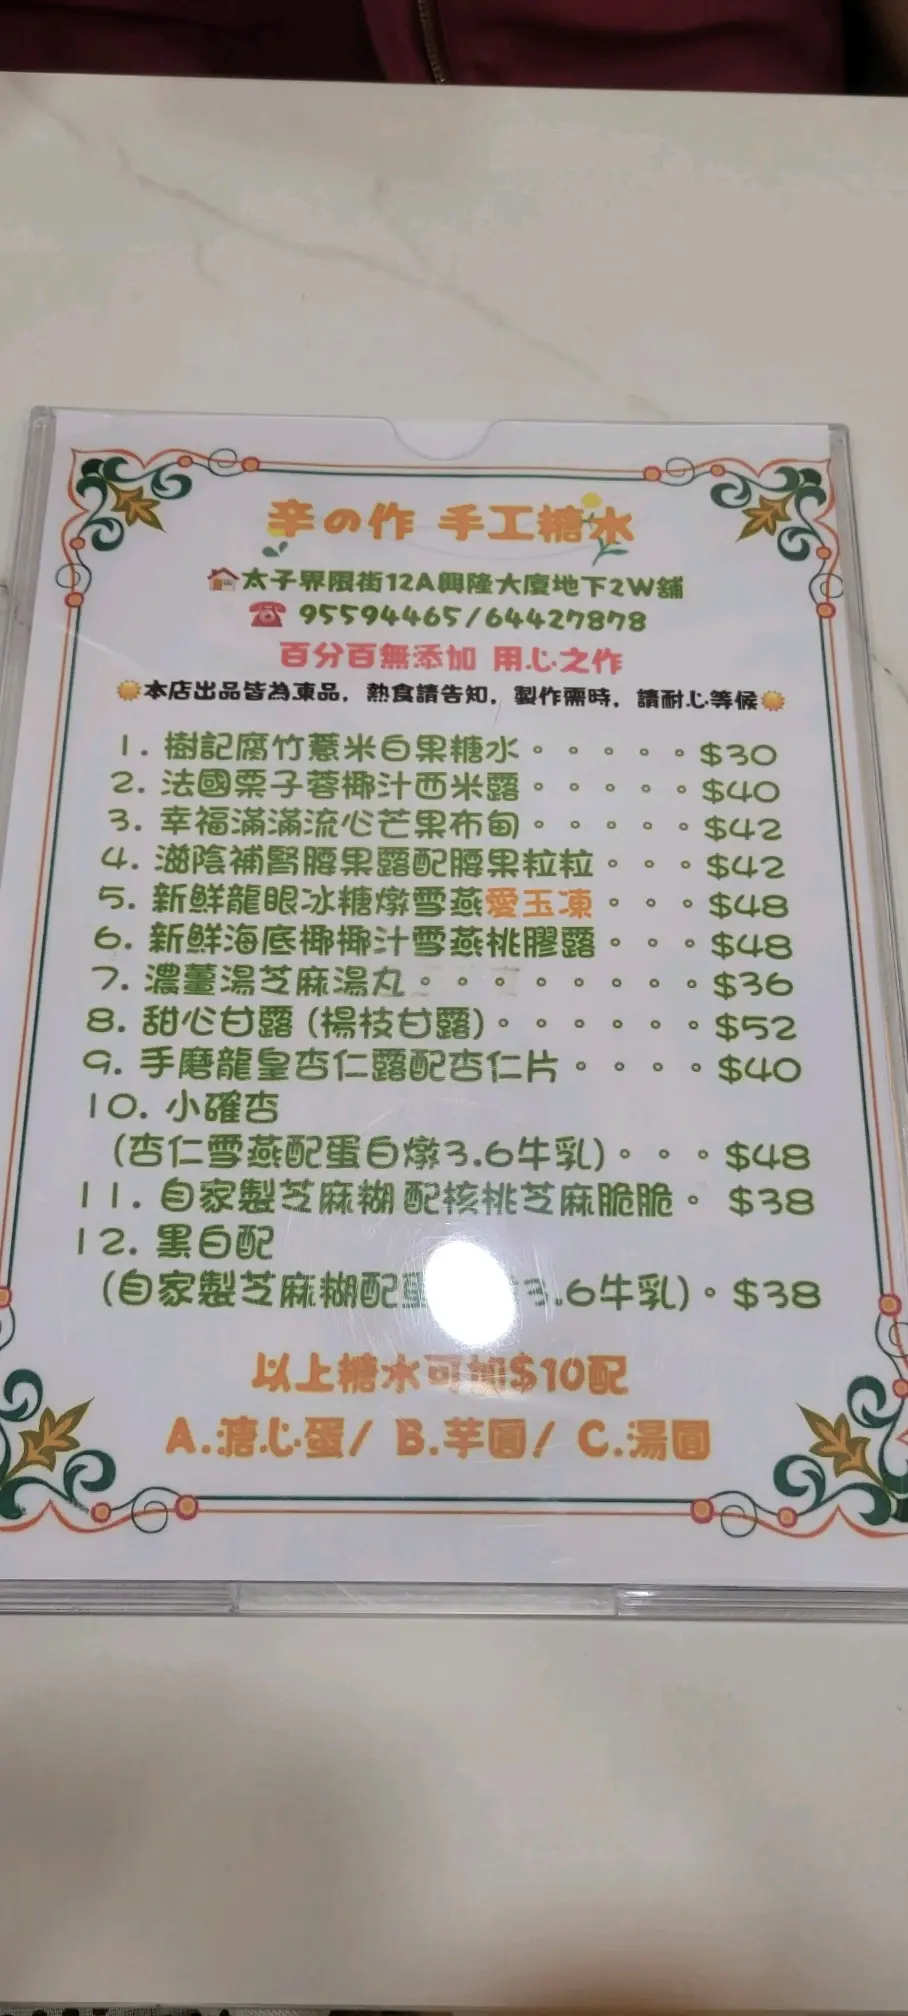 辛の作 手工糖水
太子界限街12A興隆大廈地下2W舖
95594465/64427878
百分百無添加 用心之作
本店出品皆為凍品，熱食請告知，製作需時，請耐心等候
1. 樹記腐竹薏米白果糖水。。。。。$30
2. 法國栗子蓉椰汁西米露。。。。。$40
3. 幸福滿滿流心芒果布甸。。。。。$42
4. 滋陰補腎腰果露配腰果粒粒。。。$42
5. 新鮮龍眼冰糖燉雪燕愛玉凍。。。$48
6. 新鮮海底椰椰汁雪燕桃膠露。。。$48
7. 濃薑湯芝麻湯丸。。。。。。。。$36
8. 甜心甘露 (楊枝甘露)。。。。。。$52
9. 手磨龍皇杏仁露配杏仁片。。。。$40
10. 小確杏
(杏仁雪燕配蛋白燉3.6牛乳)。。。$48
11. 自家製芝麻糊 配核桃芝麻脆脆。 $38
12. 黑白配
(自家製芝麻糊配 3.6牛乳)。$38
以上糖水可加$10配
A.溏心蛋/ B.芋圓/ C.湯圓